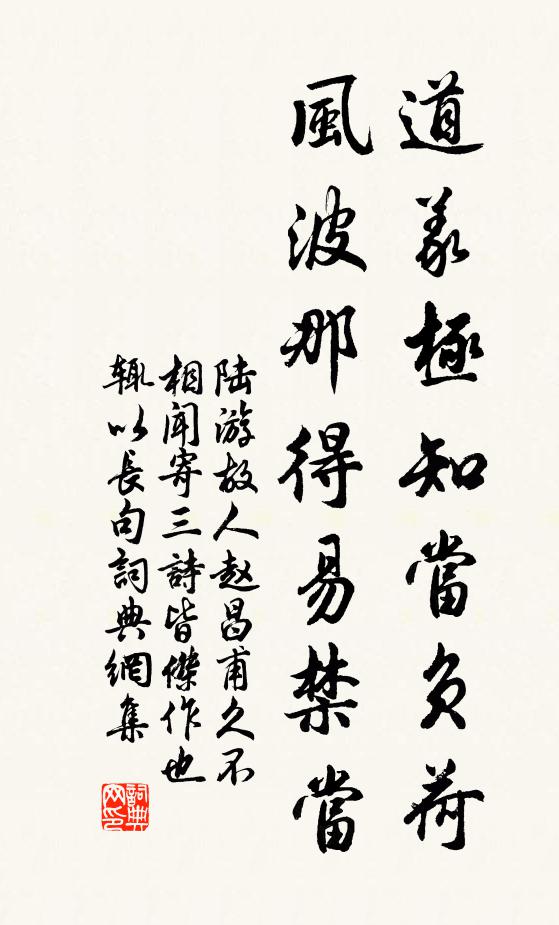 道義極知當負荷
風波那得易禁當
陆游故人赵昌甫久不
相闻寄三詩皆傑作也
辄以長句詞典網集
詞典网印